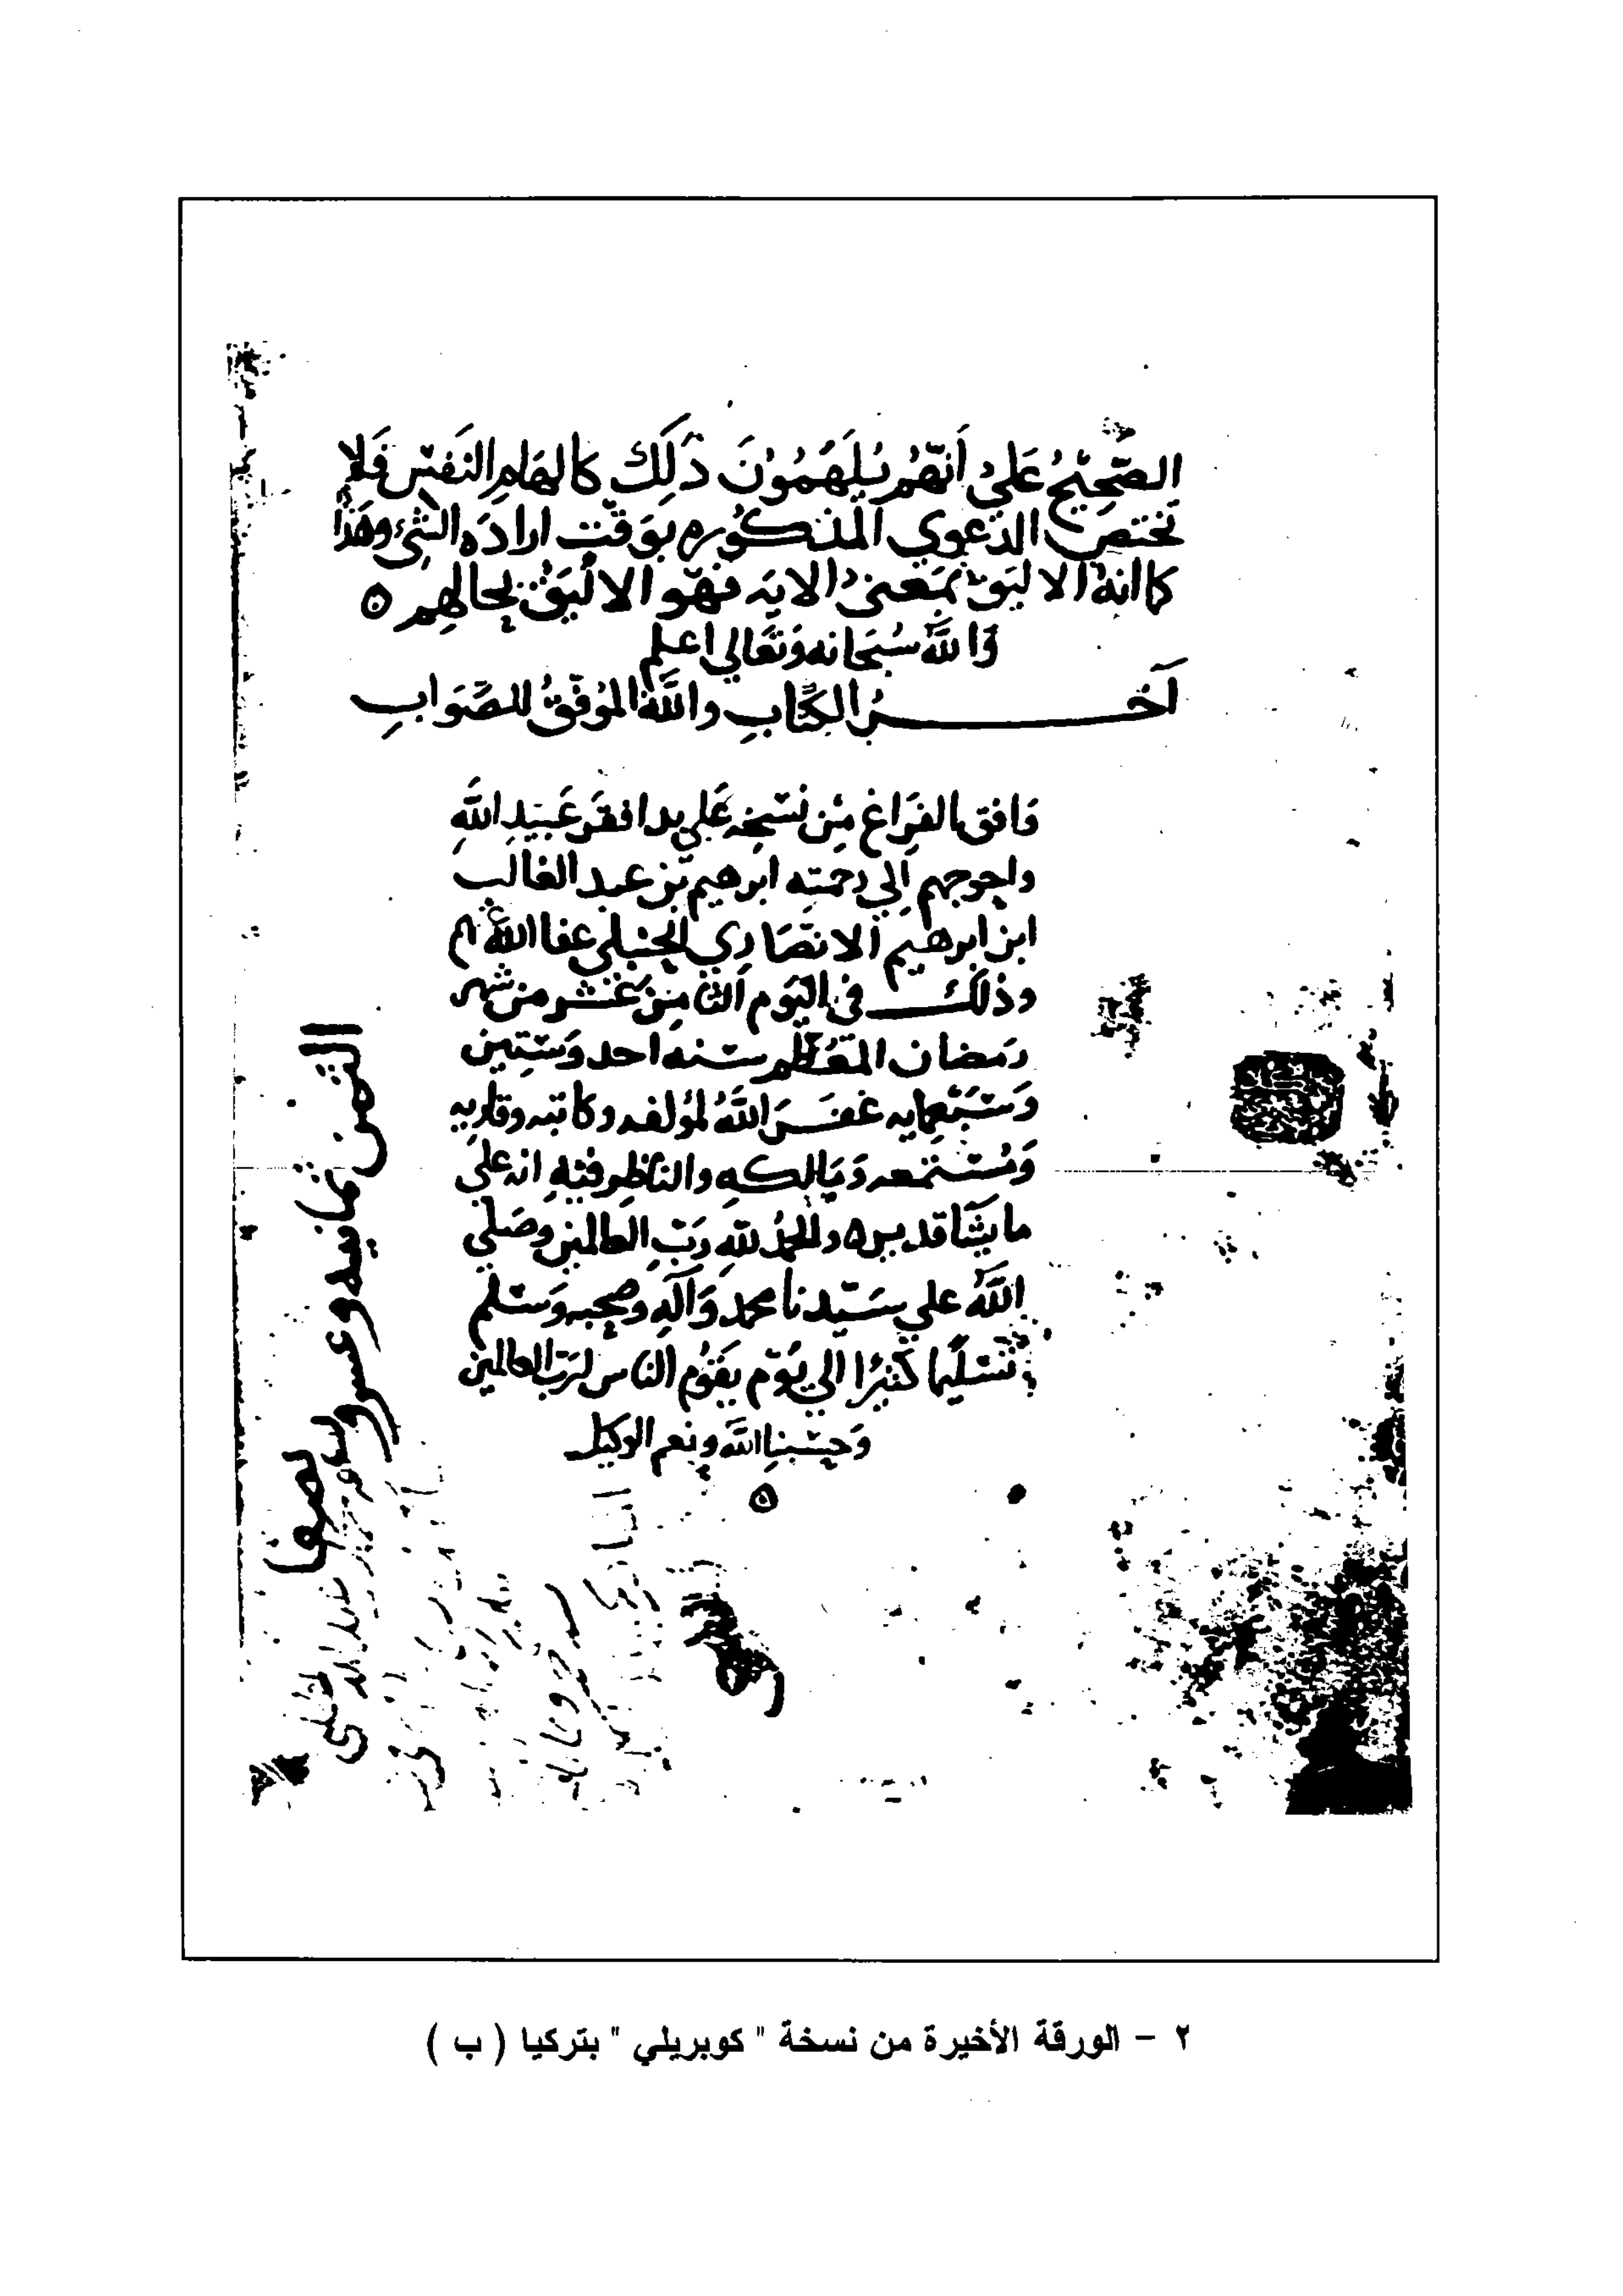 الصَّحِيْحُ عَلىٰ أنّهُم يُلهَمُوْنَ ذَلِكَ كالهَامِ النَفسِ فَلا
تختص الدعوي المذكوره بوَقت ارادَه الشيء وهَذا
كما انهُ الاليَق بمَعنىٰ الايَه فهو الاليَقُ بحالهِم ٥
وَاللهُ سُبحَانه وَتعَالي اعلم
آخرُ الكتابِ واللهُ الموُفّقُ للصَّوَابِ
وَافق الفَرَاغ مِن نَسْخِه عَلي يد افقر عَبيدِ اللهِ
واحوجهم إلي رحمَتِه ابرهيم بن عبد الغالب
ابن ابرهيم الانصَاري الحنبلي عفا الله عنهم
وذلكَ في اليَوم الثامِن عَشر من شهر
رمضان المعَظم سنه احد وَستين
وَسَبعمايه غفَرَ اللهُ لمؤلفه وكاتبه وقاريه
وَمُسْتمعه وَمَالكه والناظِر فيْهِ انه علي
ما يشَآ قدير ٥ والحمدُ للهِ رَبّ العَالمين وصَلي
اللهُ علي سَيّدنا محمد وَآلهِ وصحبه وَسَلم
تسْليمًا كَثيرًا الي يَوْم يقوُم الناس لرَبّ العالمين
وَحسْبنا الله ونعم الوكيل
٥
الثمن ثمانيه وعشرون نصفا
٢ - الورقة الأخيرة من نسخة " كوبريلي " بتركيا ( ب )